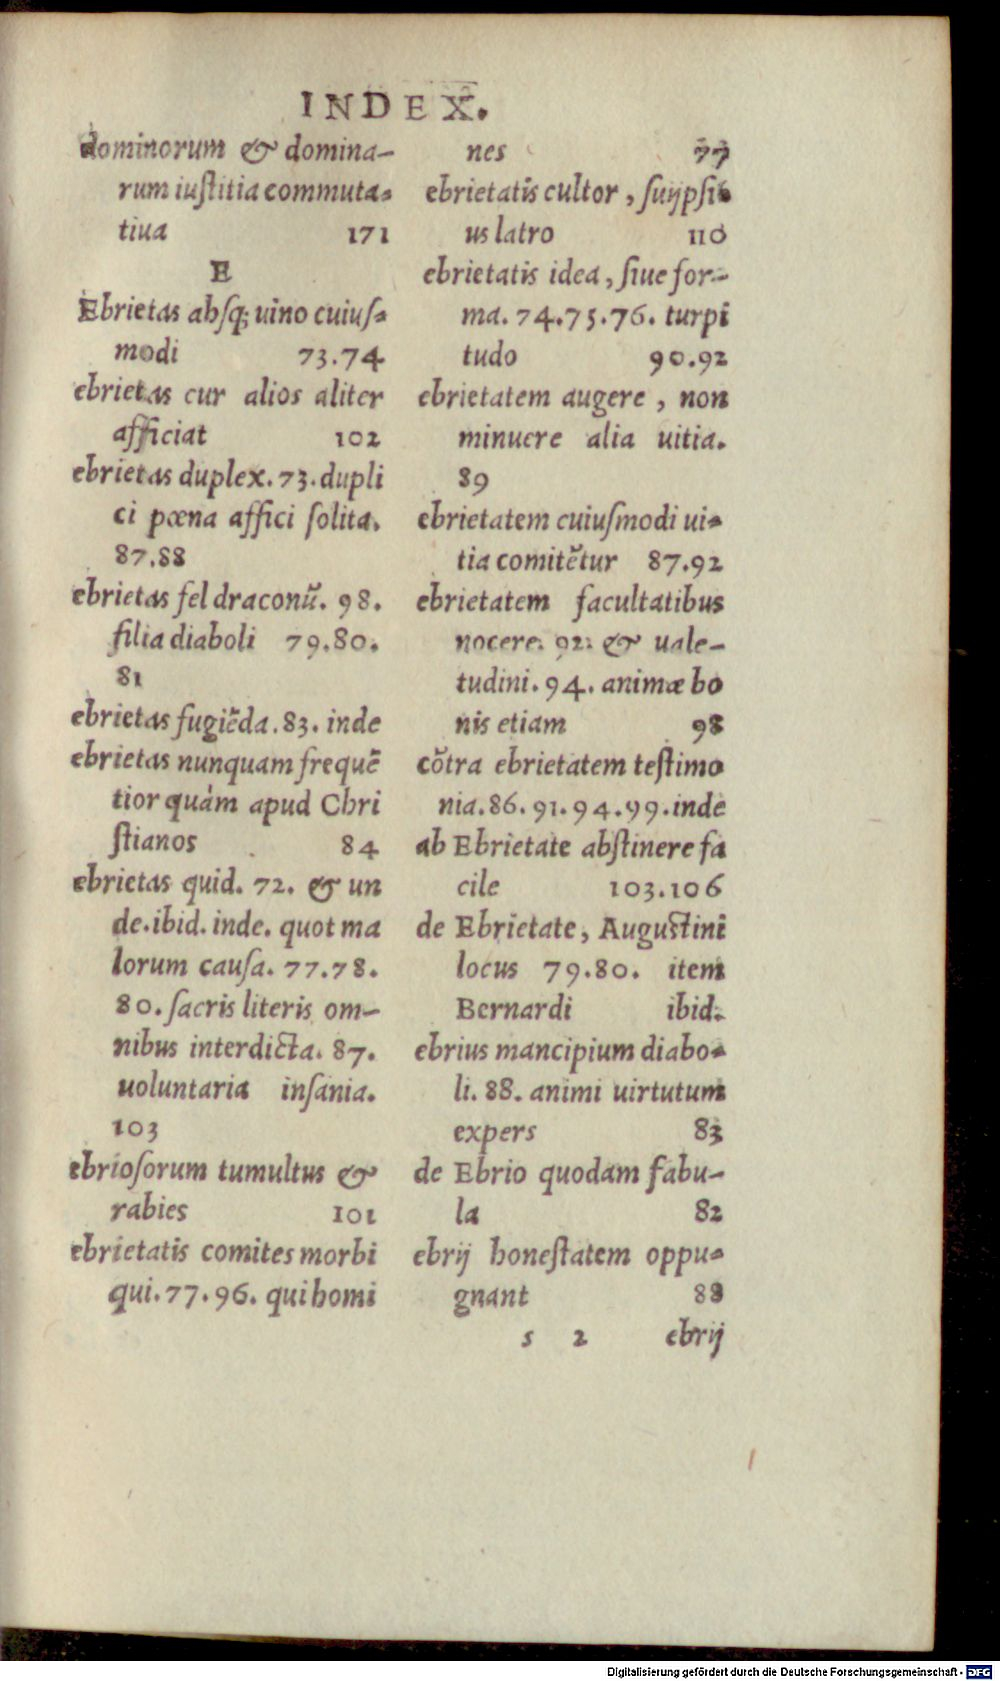 INDEX.
dominorum & domina-
rum iuſtitia commuta-
tiua 171
E
Ebrietas abſq; uino cuiuſ-
modi 73.74
ebrietas cur alios aliter
afficiat 102
ebrietas duplex. 73. dupli
ci pœna affici ſolita.
87.88
ebrietas fel draconū. 98.
filia diaboli 79.80.
81
ebrietas fugiēda. 83. inde
ebrietas nunquam frequē
tior quàm apud Chri
ſtianos 84
ebrietas quid. 72. & un
de. ibid. inde. quot ma
lorum cauſa. 77.78.
80. ſacris literis om-
nibus interdicta. 87.
uoluntaria inſania.
103
ebrioſorum tumultus &
rabies 101
ebrietatis comites morbi
qui. 77.96. qui homi
nes 77
ebrietatis cultor, ſuijpſi-
us latro 110
ebrietatis idea, ſiue for-
ma. 74.75.76. turpi
tudo 90.92
ebrietatem augere, non
minuere alia uitia.
89
ebrietatem cuiuſmodi ui-
tia comitētur 87.92
ebrietatem facultatibus
nocere. 92. & uale-
tudini. 94. animæ bo
nis etiam 98
cōtra ebrietatem teſtimo
nia. 86.91.94.99. inde
ab Ebrietate abſtinere fa
cile 103.106
de Ebrietate, Auguſtini
locus 79.80. item
Bernardi ibid.
ebrius mancipium diabo-
li. 88. animi uirtutum
expers 83
de Ebrio quodam fabu-
la 82
ebrij honeſtatem oppu-
gnant 88
s 2 ebrij
Digitalisierung gefördert durch die Deutsche Forschungsgemeinschaft - DFG